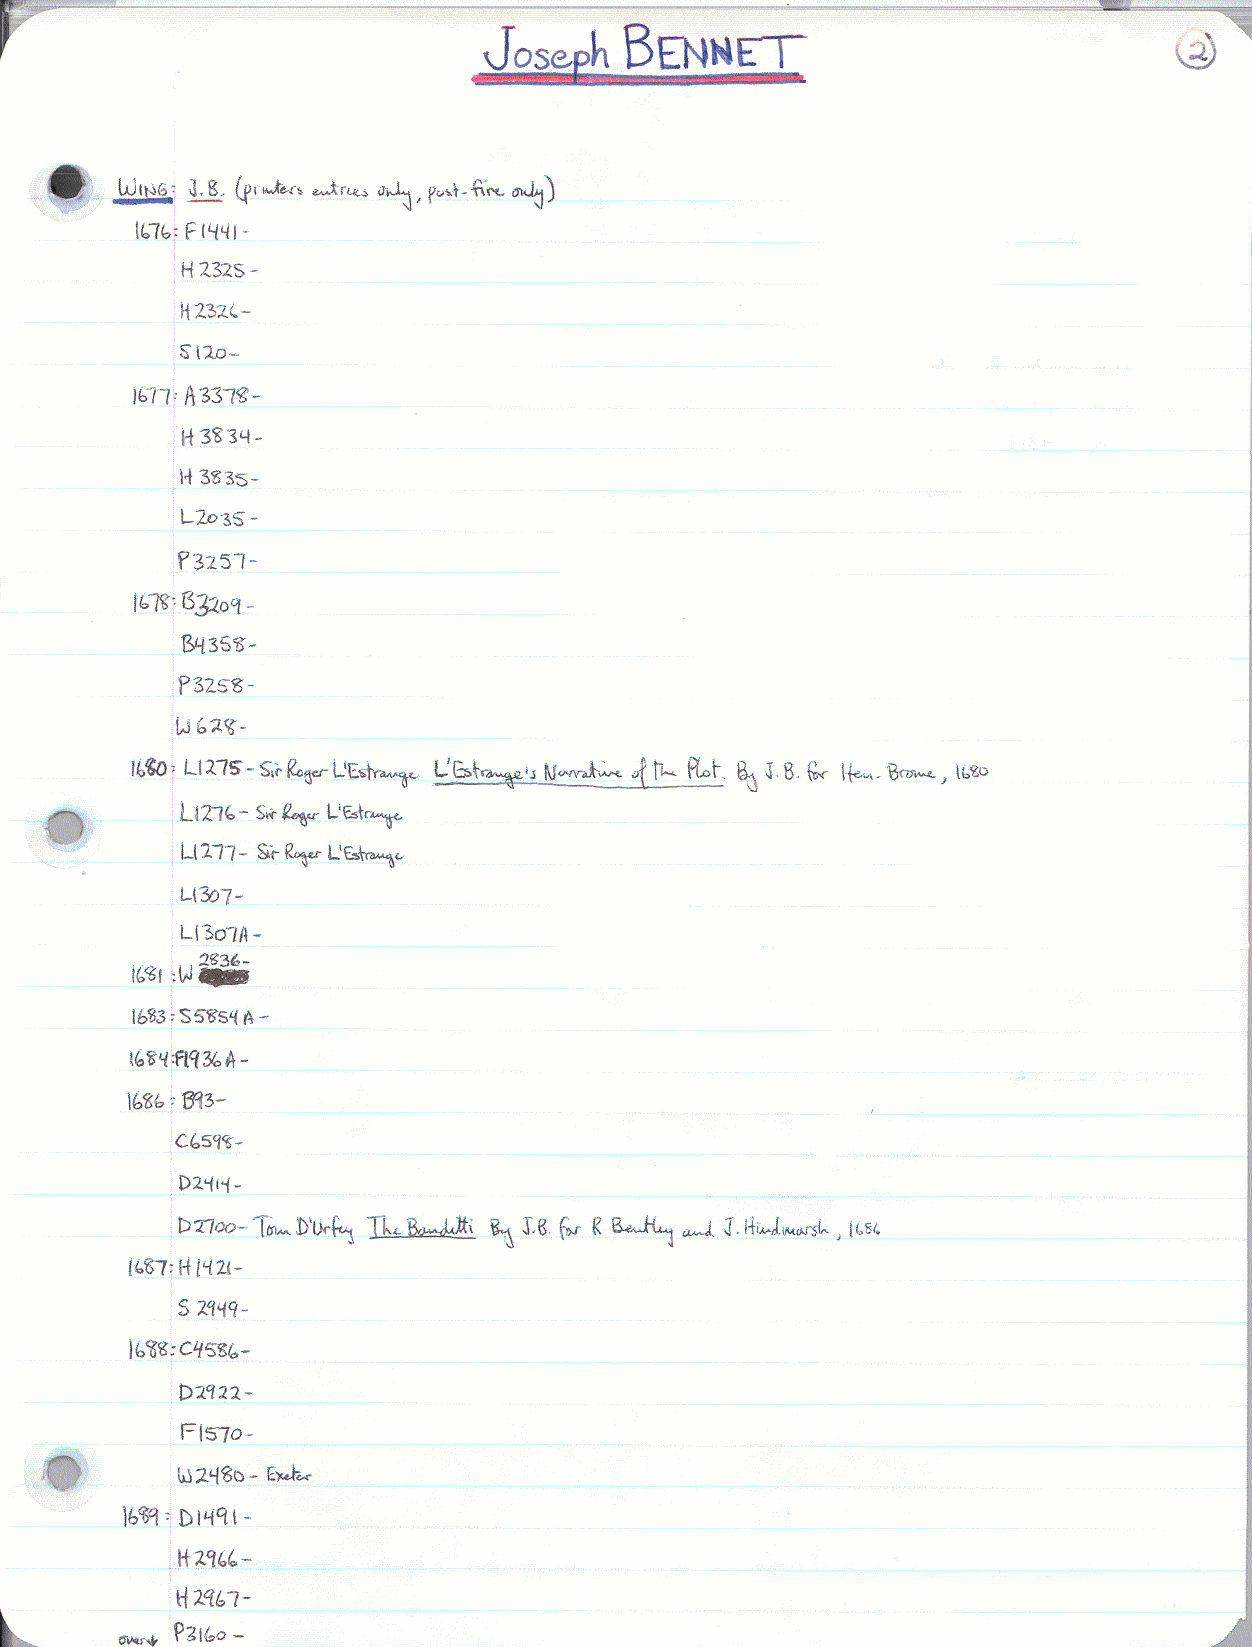 Joseph BENNET
2
WING: J.B. (printers entries only, post-fire only)
1676: F1441-
H2325-
H2326-
S120-
1677: A3378-
H3834-
H3835-
L2035-
P3257-
1678: B3209-
B4358-
P3258-
W628-
1680: L1275- Sir Roger L'Estrange L'Estrange's Narrative of the Plot. By J.B. for Hen. Brome, 1680
L1276- Sir Roger L'Estrange
L1277- Sir Roger L'Estrange
L1307-
L1307A-
2836-
1681: W
1683: S5854A-
1684: F1936A-
1686: B93-
C6598-
D2414-
D2700- Tom D'Urfey The Banditti By J.B. for R Bentley and J. Hindmarsh, 1686
1687: H1421-
S2949-
1688: C4586-
D2922-
F1570-
W2480- Exeter
1689: D1491-
H2966-
H2967-
over↓ P3160-